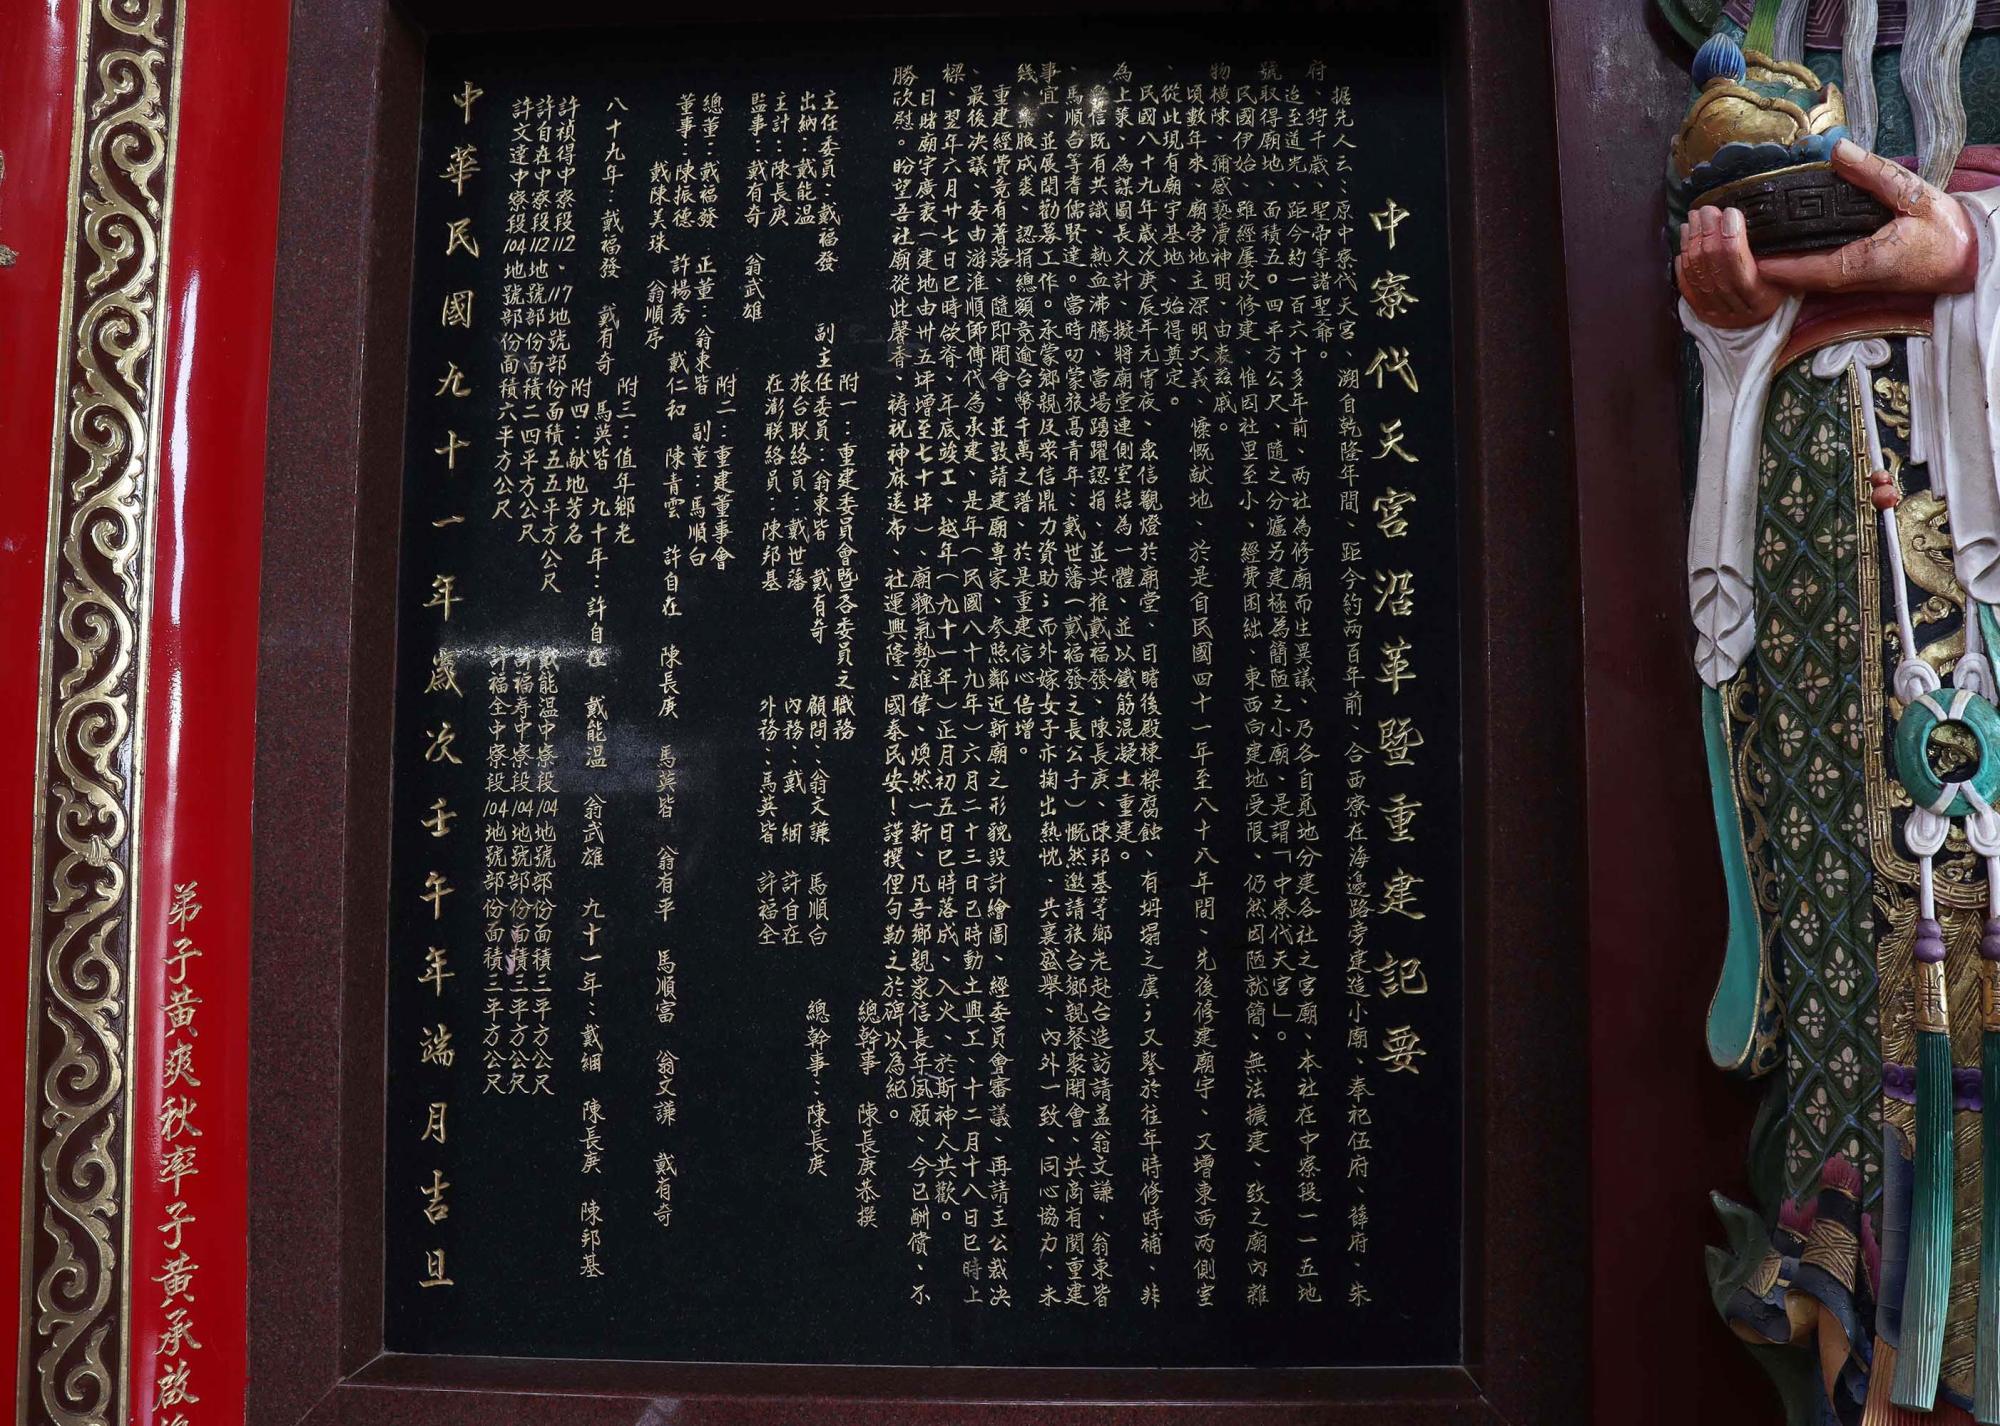 中寮代天宮沿革暨重建記要
據先人云：原中寮代天宮、溯自乾隆年間、距今約兩百年前、合西寮在海邊路旁建造小廟、奉祀伍府、薛府、朱
府、狩千歲、聖帝等諸聖爺。
迨至道光、距今約一百六十多年前、兩社為修廟而生異議、乃各自覓地分建各社之宮廟、本社在中寮段一一五地
號取得廟地、面積五。四平方公尺、隨之分爐另建極為簡陋之小廟、是謂「中寮代天宮」。
民國伊始、雖經屢次修建、惟因社里至小、經費困絀、東西向建地受限、仍然因陋就簡、無法擴建、致之廟內雜
物橫陳、彌感褻瀆神明、由衷茲慼。
頃數年來、廟旁地主深明大義、慷慨献地、於是自民國四十一年至八十八年間、先後修建廟宇、又增東西兩側室
、從此現有廟宇基地、始得奠定。
民國八十九年歲次庚辰年元宵夜、眾信觀燈於廟堂、目睹後殿棟樑腐蝕、有坍塌之虞；又鑒於往年時修時補、非
為上策、為謀圖長久計、擬將廟堂連側室結為一體、並以鐵筋混凝土重建。
眾信既有共識、熱血沸騰、當場踴躍認捐、並共推戴福發、陳長庚、陳邦基等鄉老赴台造訪請益翁文謙、翁東皆
、馬順白等耆儒賢達。當時叨蒙旅高青年：戴世藩（戴福發之長公子）慨然邀請旅台鄉親餐聚開會、共商有関重建
事宜、並展開勸募工作。承蒙鄉親及眾信鼎力資助；而外嫁女子亦掬出熱忱、共襄盛舉、內外一致、同心協力、未
幾、集腋成裘、認捐總額竟逾台幣千萬之譜、於是重建信心倍增。
重建經費竟有著落、隨即開會、並敦請建廟專家、參照鄰近新廟之形貌設計繪圖、經委員會審議、再請王公裁決
、最後決議、委由游淮順師傅代為承建、是年（民國八十九年）六月二十三日巳時動土興工、十二月十八日巳時上
樑、翌年六月廿七日巳時欲脊、年底竣工、越年（九十一年）正月初五日巳時落成、入火、於斯神人共歡。
目睹廟宇廣袤（建地由卅五坪增至七十坪）、廟貌氣勢雄偉、煥然一新、凡吾鄉親眾信長年夙願、今已酬償、不
勝欣慰。盼望吾社廟從此馨香、禱祝神庥遠布、社運興隆、國泰民安！謹撰俚句勒之於碑以為紀。
總幹事 陳長庚恭撰
附一：重建委員會暨各委員之職務
主任委員：戴福發 副主任委員：翁東皆 戴有奇 顧問：翁文謙 馬順白 總幹事：陳長庚
出納：戴能溫 旅台聯絡員：戴世藩 內務：戴綑 許自在
主計：陳長庚 在澎联絡員：陳邦基 外務：馬英皆 許福全
監事：戴有奇 翁武雄
附二：重建董事會
總董：戴福發 正董：翁東皆 副董：馬順白
董事：陳振德 許楊秀 戴仁和 陳青雲 許自在 陳長庚 馬英皆 翁有平 馬順富 翁文謙 戴有奇
戴陳美珠 翁順序
附三：值年鄉老
八十九年：戴福發 戴有奇 馬英皆 九十年：許自在 戴能溫 翁武雄 九十一年：戴綑 陳長庚 陳邦基
附四：献地芳名
許禎得中寮段112、117地號部份面積五五平方公尺 戴能溫中寮段104地號部份面積二平方公尺
許自在中寮段112地號部份面積二四平方公尺 許福寿中寮段104地號部份面積三平方公尺
許文達中寮段104地號部份面積六平方公尺 許福全中寮段104地號部份面積二平方公尺
中華民國九十一年歲次壬午年端月吉旦
弟子黃爽秋率子黃承啟